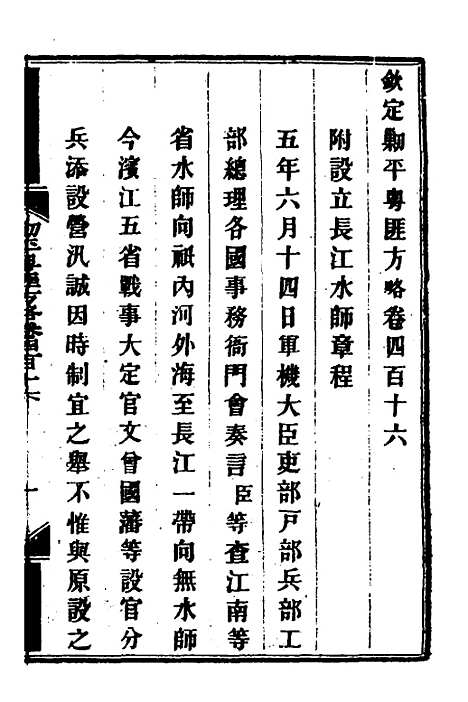 欽定剿平粵匪方略卷四百十六
附設立長江水師章程
五年六月十四日軍機大臣吏部戸部兵部工
部總理各國事務衙門會奏言臣等查江南等
省水師向祇內河外海至長江一帶向無水師
今濱江五省戰事大定官文曾國藩等設官分
兵添設營汛誠因時制宜之舉不惟與原設之